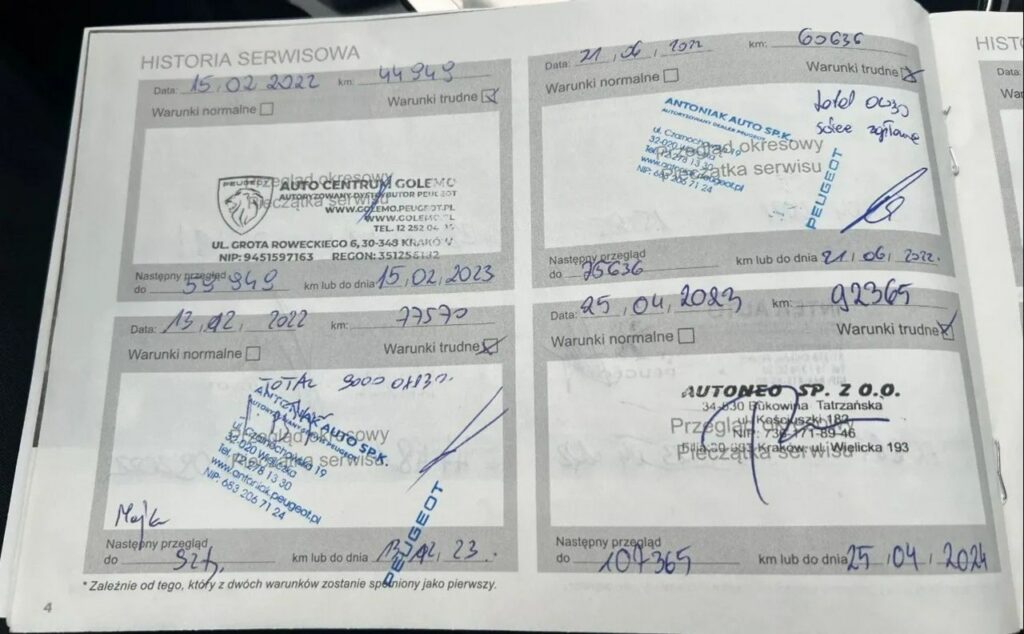 HISTORIA SERWISOWA
Data: 15.02.2022 km: 44949
Warunki normalne Warunki trudne
Przegląd okresowy
Pieczątka serwisu
PEUGEOT
AUTO CENTRUM GOLEMO
AUTORYZOWANY DYSTRYBUTOR PEUGEOT
WWW.GOLEMO.PEUGEOT.PL
WWW.GOLEMO.PL
TEL. 12 252
UL. GROTA ROWECKIEGO 6, 30-348 KRAKÓW
NIP: 9451597163 REGON:
Następny przegląd
do 59949 km lub do dnia 15,02,2023
Data: 21,06,2022 km: 60636
Warunki normalne Warunki trudne
total
ANTONIAK AUTO SP.K.
AUTORYZOWANY DEALER PEUGEOT
ul. Czarnochowska 19
32-020 Wieliczka
Tel. 12 278 13 30
www.antoniak.peugeot.pl
NIP: 683 206 71 24
PEUGEOT
Przegląd okresowy
Pieczątka serwisu
Następny przegląd
do 75636 km lub do dnia 21,06,2022.
Data: 13,12, 2022 km: 77570
Warunki normalne Warunki trudne
TOTAL 9000
ANTONIAK AUTO SP.K.
AUTORYZOWANY DEALER PEUGEOT
ul. Czarnochowska 19
32-020 Wieliczka
Tel. 12 278 13 30
www.antoniak.peugeot.pl
NIP: 683 206 71 24
PEUGEOT
Przegląd okresowy
Pieczątka serwisu
Następny przegląd
do km lub do dnia 13,12,23.
Data: 25,04,2023 km: 92365
Warunki normalne Warunki trudne
AUTONEO SP. Z O.O.
34-530 Bukowina Tatrzańska
ul. Kościuszki 182
NIP: 736-171-89-46
Filia 30-663 Kraków, ul. Wielicka 193
Przegląd okresowy
Pieczątka serwisu
Następny przegląd
do 107365 km lub do dnia 25,04,2024
* Zależnie od tego, który z dwóch warunków zostanie spełniony jako pierwszy.
4
HIST
Data: